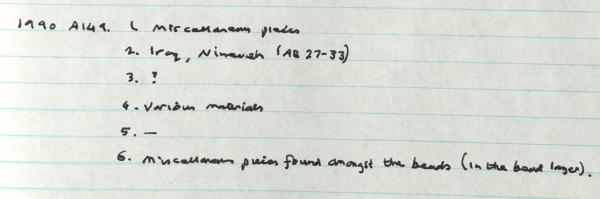 1990 A149. 1. Miscellaneous pieces
2. Iraq, Nineveh (AB 27-33)
3. ?
4. Various materials
5. —
6. Miscellaneous pieces found amongst the beads (in the bead layer).